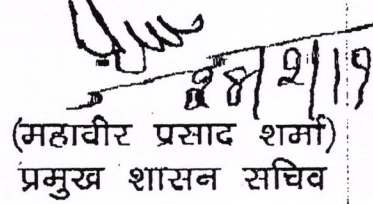 (महावीर प्रसाद शर्मा)
प्रमुख शासन सचिव